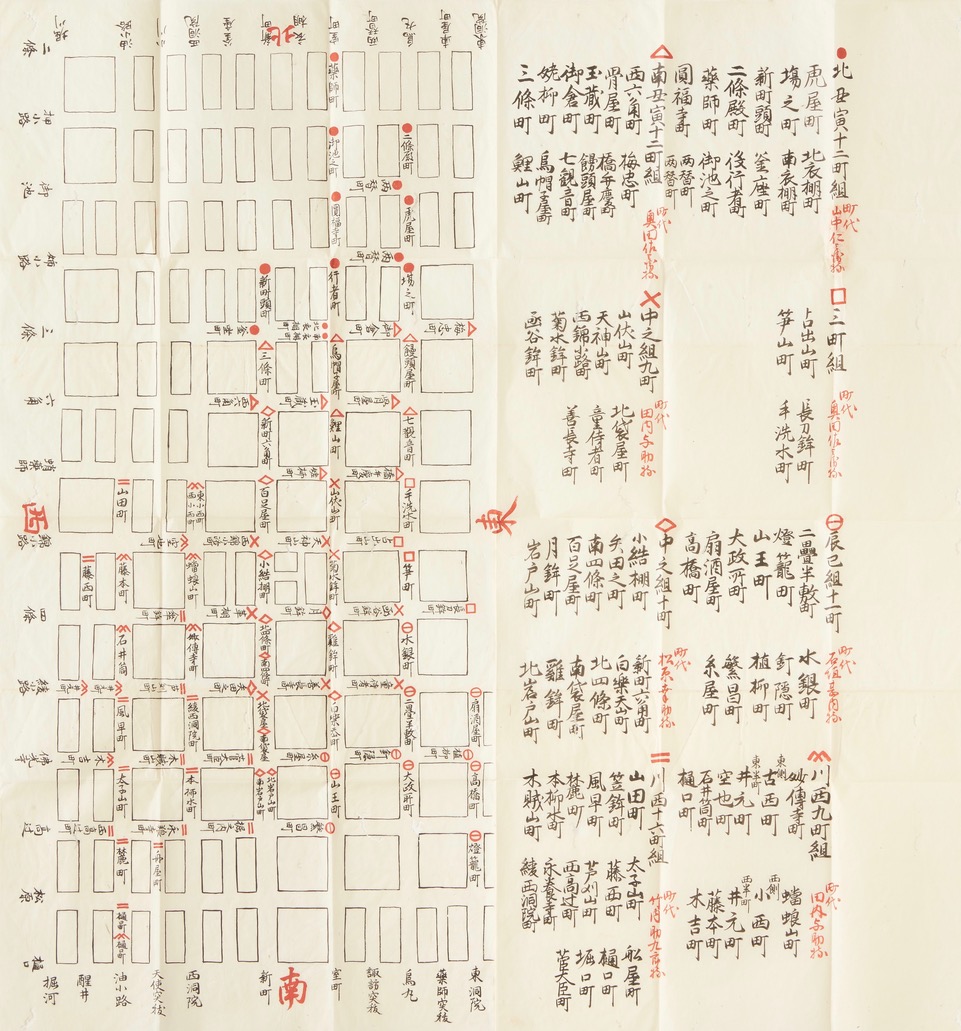 北丑寅十二町組
町代
虎屋町
北衣棚町
塲之町
南衣棚町
新町頭町
釜座町
二條殿町
役行者町
藥師町
御池之町
圓福寺町
両替町
両替町
南丑寅十二町組
町代
西六角町
梅忠町
骨屋町
橋弁慶町
玉蔵町
饅頭屋町
御倉町
七観音町
姥柳町
烏帽子屋町
三條町
鯉山町
三町組
町代
占出山町
長刀鉾町
笋山町
手洗水町
中之組九町
町代
田内与助
山伏山町
北袋屋町
天神山町
童侍者町
西錦小路町
善長寺町
菊水鉾町
函谷鉾町
辰巳組十一町
町代
二疊半敷町
水銀町
燈籠町
釘隠町
山王町
植柳町
大政所町
繁昌町
扇酒屋町
糸屋町
高橋町
中之組十町
町代
小結棚町
新町六角町
矢田之町
白樂天山町
南四條町
北四條町
百足屋町
南袋屋町
月鉾町
雞鉾町
岩戸山町
北岩戸山町
川西九町組
町代
田内与助
妙傳寺町
蟷螂山町
東側
古西町
西側
小西町
井元町
井元町
空也町
藤本町
石井筒町
木吉町
樋口町
川西十六町組
町代
山田町
太子山町
船屋町
笠鉾町
藤西町
樋口町
風早町
芦刈山町
堀口町
梵麗町
西高辻町
菅大臣町
本柳水町
永養寺町
木賊山町
綾西洞院町
北
東
南
西
二條
押小路
御池
姉小路
三條
六角
蛸藥師
錦小路
四條
綾小路
佛光寺
高辻
松原
樋口
藥師町
御池之町
二條殿町
両替町
圓福寺町
虎屋町
両替町
新町頭町
行者町
塲之町
釜座町
北衣棚町
南衣棚町
御倉町
梅忠町
三條町
烏帽子屋町
饅頭屋町
西六角町
玉蔵町
骨屋町
新町六角町
鯉山町
七観音町
姥柳町
橋弁慶町
山田町
百足屋町
山伏山町
手洗水町
空也町
西錦小路町
天神山町
占出山町
藤西町
藤本町
蟷螂山町
小結棚町
菊水鉾町
笋町
月鉾町
函谷鉾町
長刀鉾町
石井筒町
妙傳寺町
北四條町
南四條町
雞鉾町
水銀町
矢田之町
善長寺町
童侍者町
風早町
綾西洞院町
北袋屋町
南袋屋町
白樂天町
二疊半敷町
扇酒屋町
木吉町
木賊山町
菅大臣町
糸屋町
釘隠町
植柳町
太子山町
本柳水町
北岩戸山町
南岩戸山町
山王町
大政所町
高橋町
西高辻町
永養寺町
堀之内町
繁昌町
梵麗町
舟屋町
燈籠町
樋口町
樋口町
堀河
醒井
油小路
天使突抜
西洞院
新町
室町
諏訪突抜
烏丸
藥師突抜
東洞院